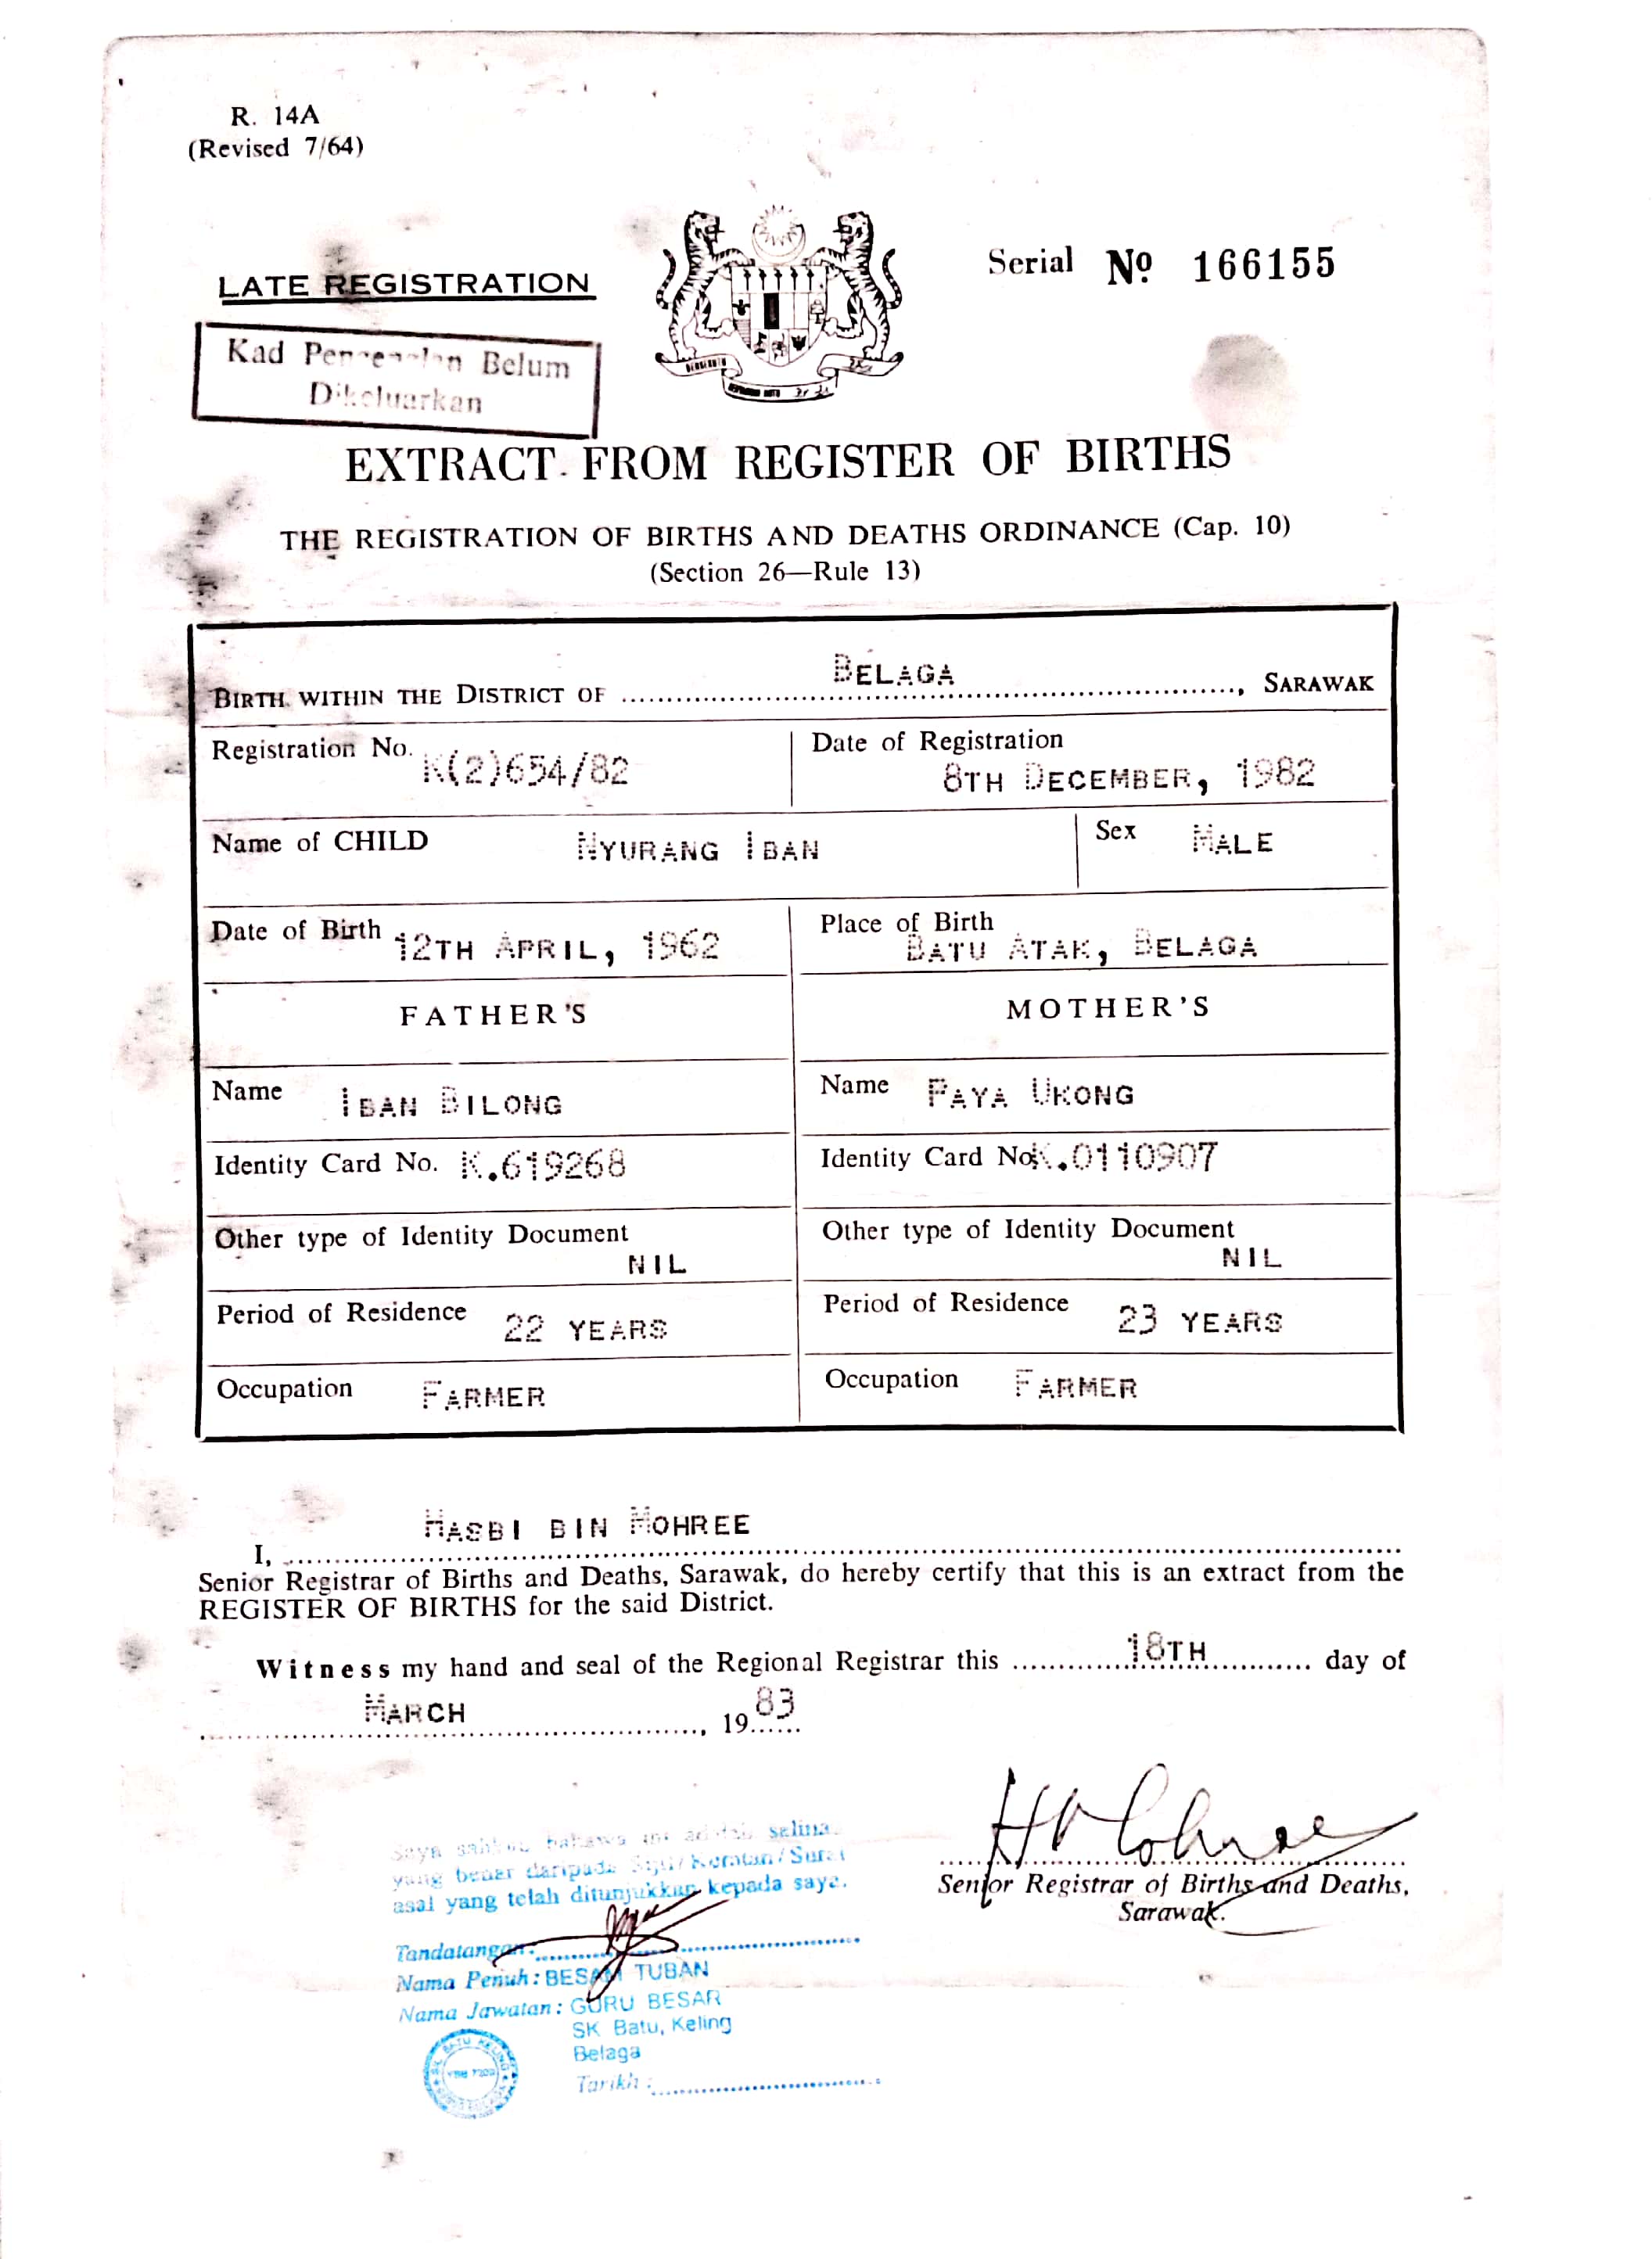 R. 14A
(Revised 7/64)
LATE REGISTRATION
Serial Nº 166155
Kad Pengenalan Belum
Dikeluarkan
EXTRACT FROM REGISTER OF BIRTHS
THE REGISTRATION OF BIRTHS AND DEATHS ORDINANCE (Cap. 10)
(Section 26—Rule 13)
BIRTH WITHIN THE DISTRICT OF BELAGA, SARAWAK
Registration No. K(2)654/82
Date of Registration
8TH DECEMBER, 1982
Name of CHILD NYURANG IBAN
Sex MALE
Date of Birth 12TH APRIL, 1962
Place of Birth
BATU ATAK, BELAGA
FATHER'S
MOTHER'S
Name IBAN BILONG
Name PAYA UKONG
Identity Card No. K.619268
Identity Card No. K.0110907
Other type of Identity Document
NIL
Other type of Identity Document
NIL
Period of Residence 22 YEARS
Period of Residence 23 YEARS
Occupation FARMER
Occupation FARMER
I, HASBI BIN MOHREE
Senior Registrar of Births and Deaths, Sarawak, do hereby certify that this is an extract from the
REGISTER OF BIRTHS for the said District.
Witness my hand and seal of the Regional Registrar this 18TH day of
MARCH, 1983
Senior Registrar of Births and Deaths,
Sarawak.
Saya sahkan bahawa ini adalah salinan
yang benar daripada Sijil/Keratan/Surat
asal yang telah ditunjukkan kepada saya.
Tandatangan:
Nama Penuh: BESAM TUBAN
Nama Jawatan: GURU BESAR
SK Batu, Keling
Belaga
Tarikh:
SK BATU KELING